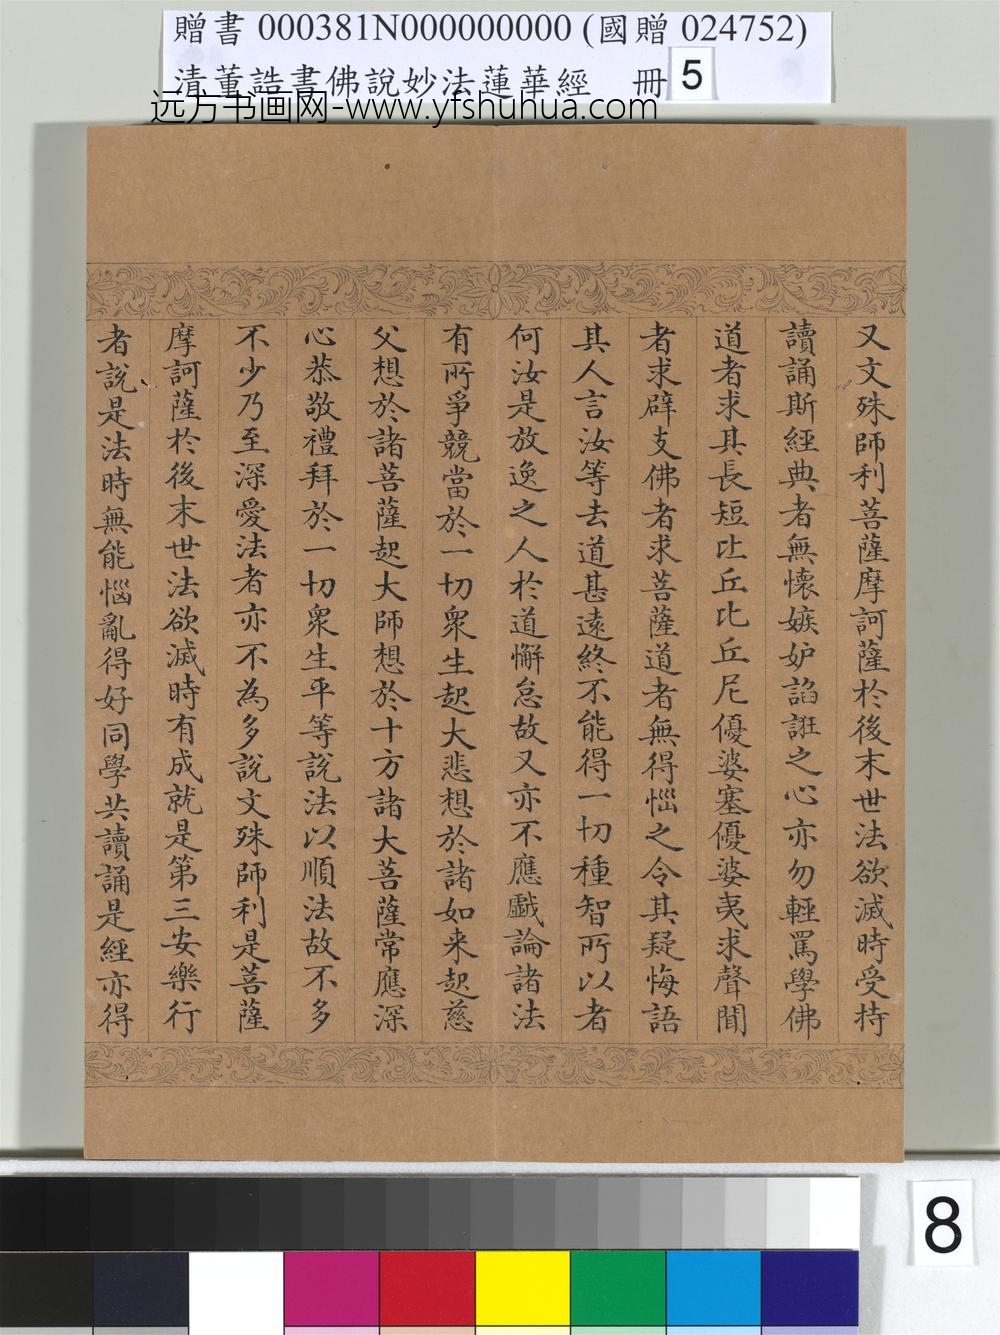 贈書 000381N000000000 (國贈 024752)
清董誥書佛說妙法蓮華經 冊 5
远方书画网-www.yfshuhua.com
又文殊師利菩薩摩訶薩於後末世法欲滅時受持
讀誦斯經典者無懷嫉妒諂誑之心亦勿輕罵學佛
道者求其長短比丘比丘尼優婆塞優婆夷求聲聞
者求辟支佛者求菩薩道者無得惱之令其疑悔語
其人言汝等去道甚遠終不能得一切種智所以者
何汝是放逸之人於道懈怠故又亦不應戲論諸法
有所爭競當於一切眾生起大悲想於諸如来起慈
父想於諸菩薩起大師想於十方諸大菩薩常應深
心恭敬禮拜於一切眾生平等說法以順法故不多
不少乃至深愛法者亦不為多說文殊師利是菩薩
摩訶薩於後末世法欲滅時有成就是第三安樂行
者說是法時無能惱亂得好同學共讀誦是經亦得
8